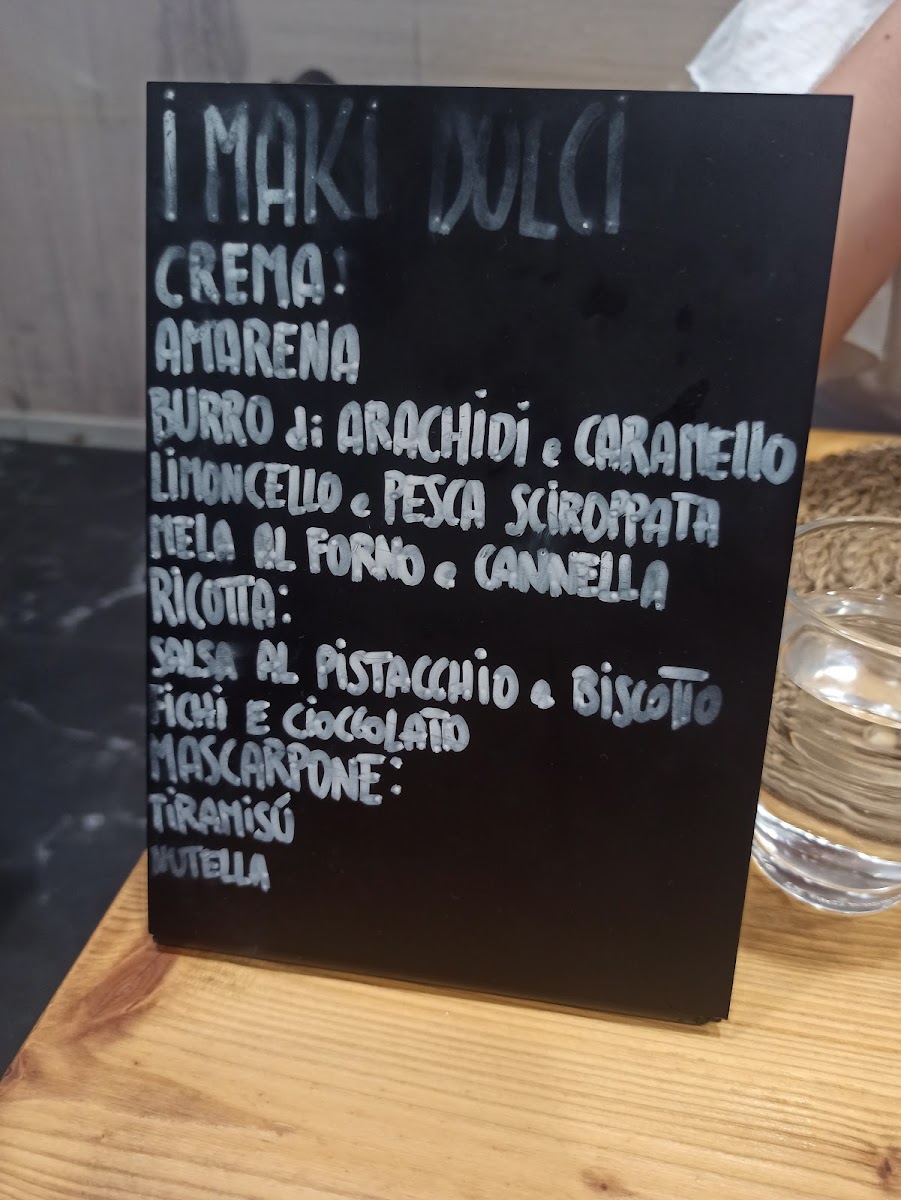 i MAKi DULCi
CREMA:
AMARENA
BURRO di ARACHiDi e CARAMEllO
LiMONCELLO e PESCA SCiROPPATA
MELA AL FORNO e CANNELLA
RiCOTTA:
SALSA AL PiSTACCHiO e BiSCOTTO
FiCHi E CiOCCOLATO
MASCARPONE:
TiRAMiSÚ
NUTELLA